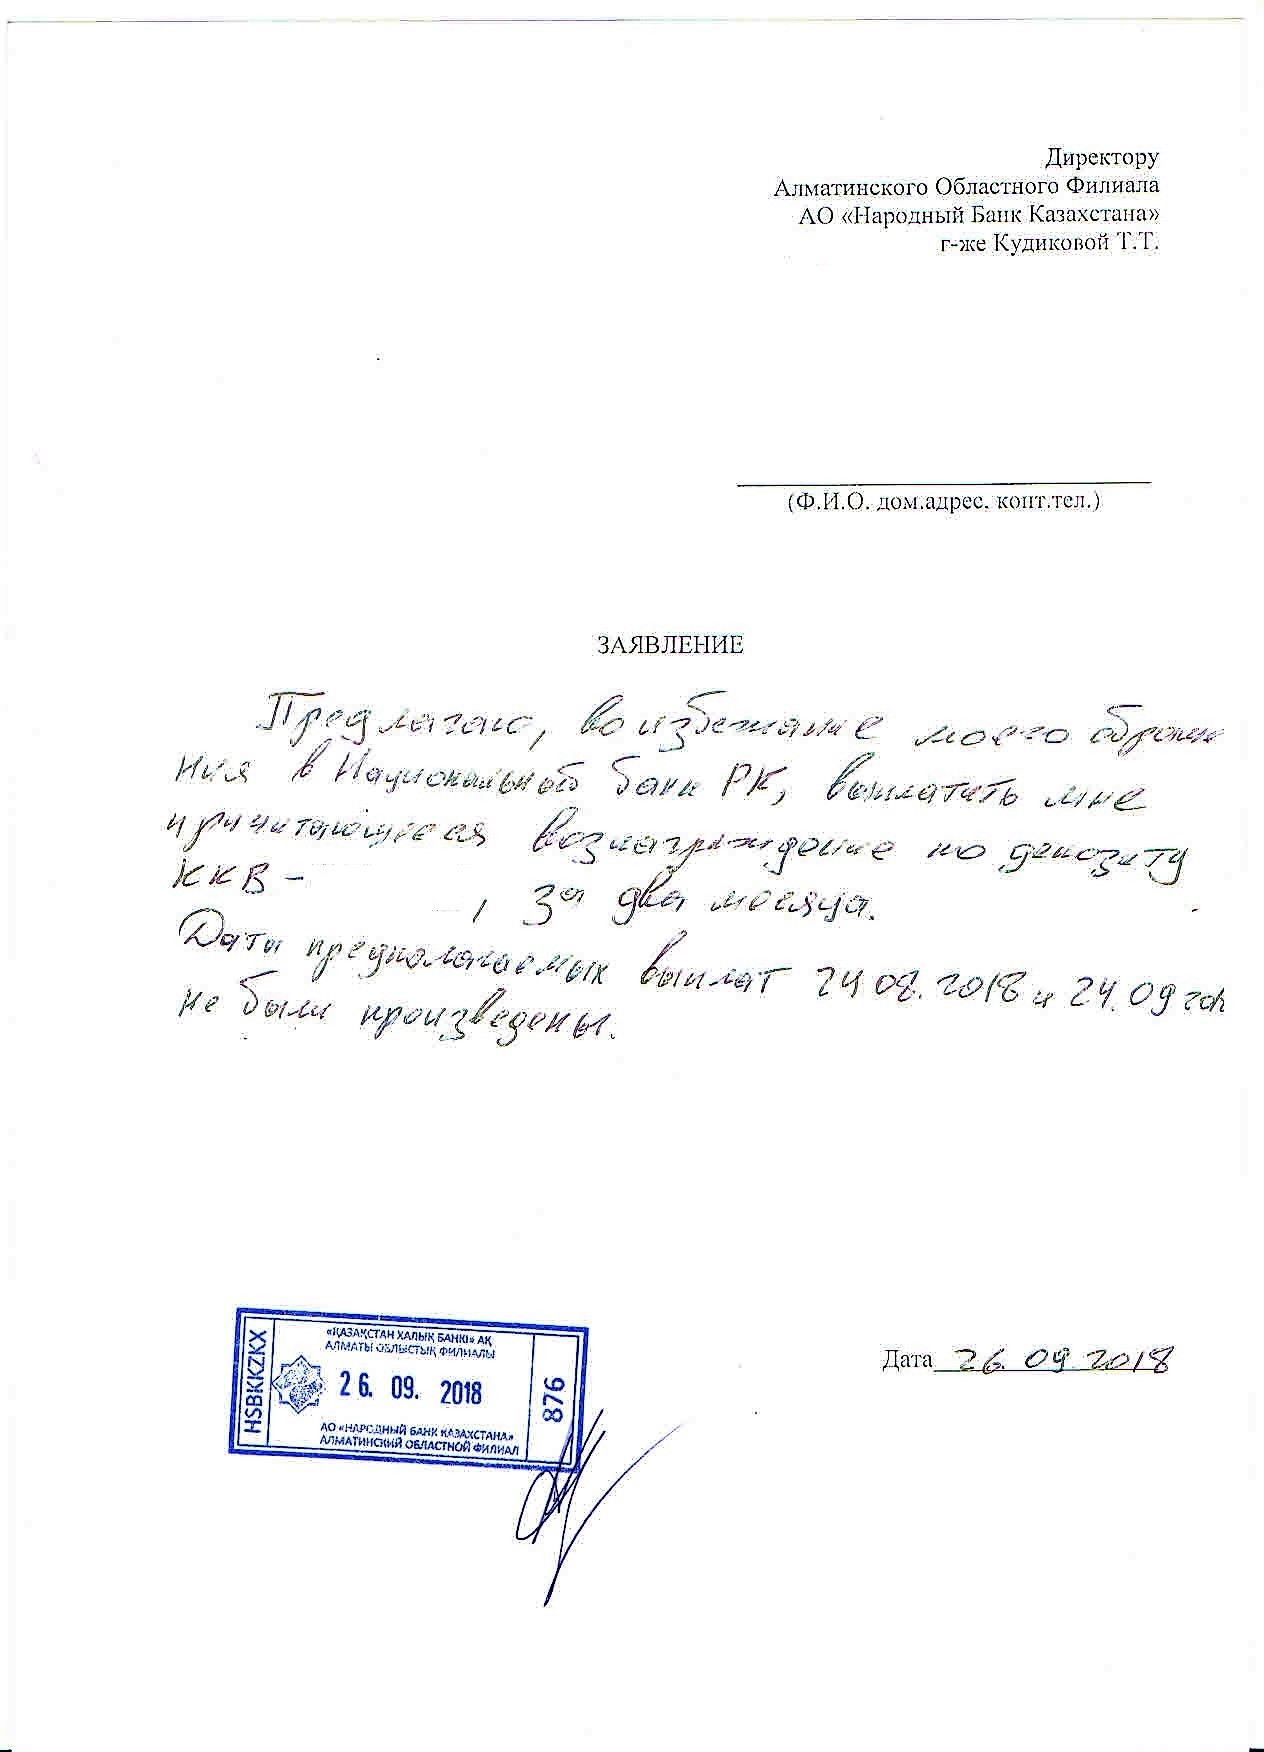 Директору
Алматинского Областного Филиала
АО «Народный Банк Казахстана»
г-же Кудиковой Т.Т.
(Ф.И.О. дом.адрес. конт.тел.)
ЗАЯВЛЕНИЕ
Предлагаю, во избежание моего обраще
ния в Национальной банк РК, выплатить мне
причитающееся вознаграждение по депозиту
ККВ -          , за два месяца.
Даты предполагаемых выплат 24 08. 2018 и 24. 09 год
не были произведены.
Дата 26. 09. 2018
HSBKKZKX
«ҚАЗАҚСТАН ХАЛЫҚ БАНКІ» АҚ
АЛМАТЫ ОБЛЫСТЫҚ ФИЛИАЛЫ
26. 09. 2018
АО «НАРОДНЫЙ БАНК КАЗАХСТАНА»
АЛМАТИНСКИЙ ОБЛАСТНОЙ ФИЛИАЛ
876